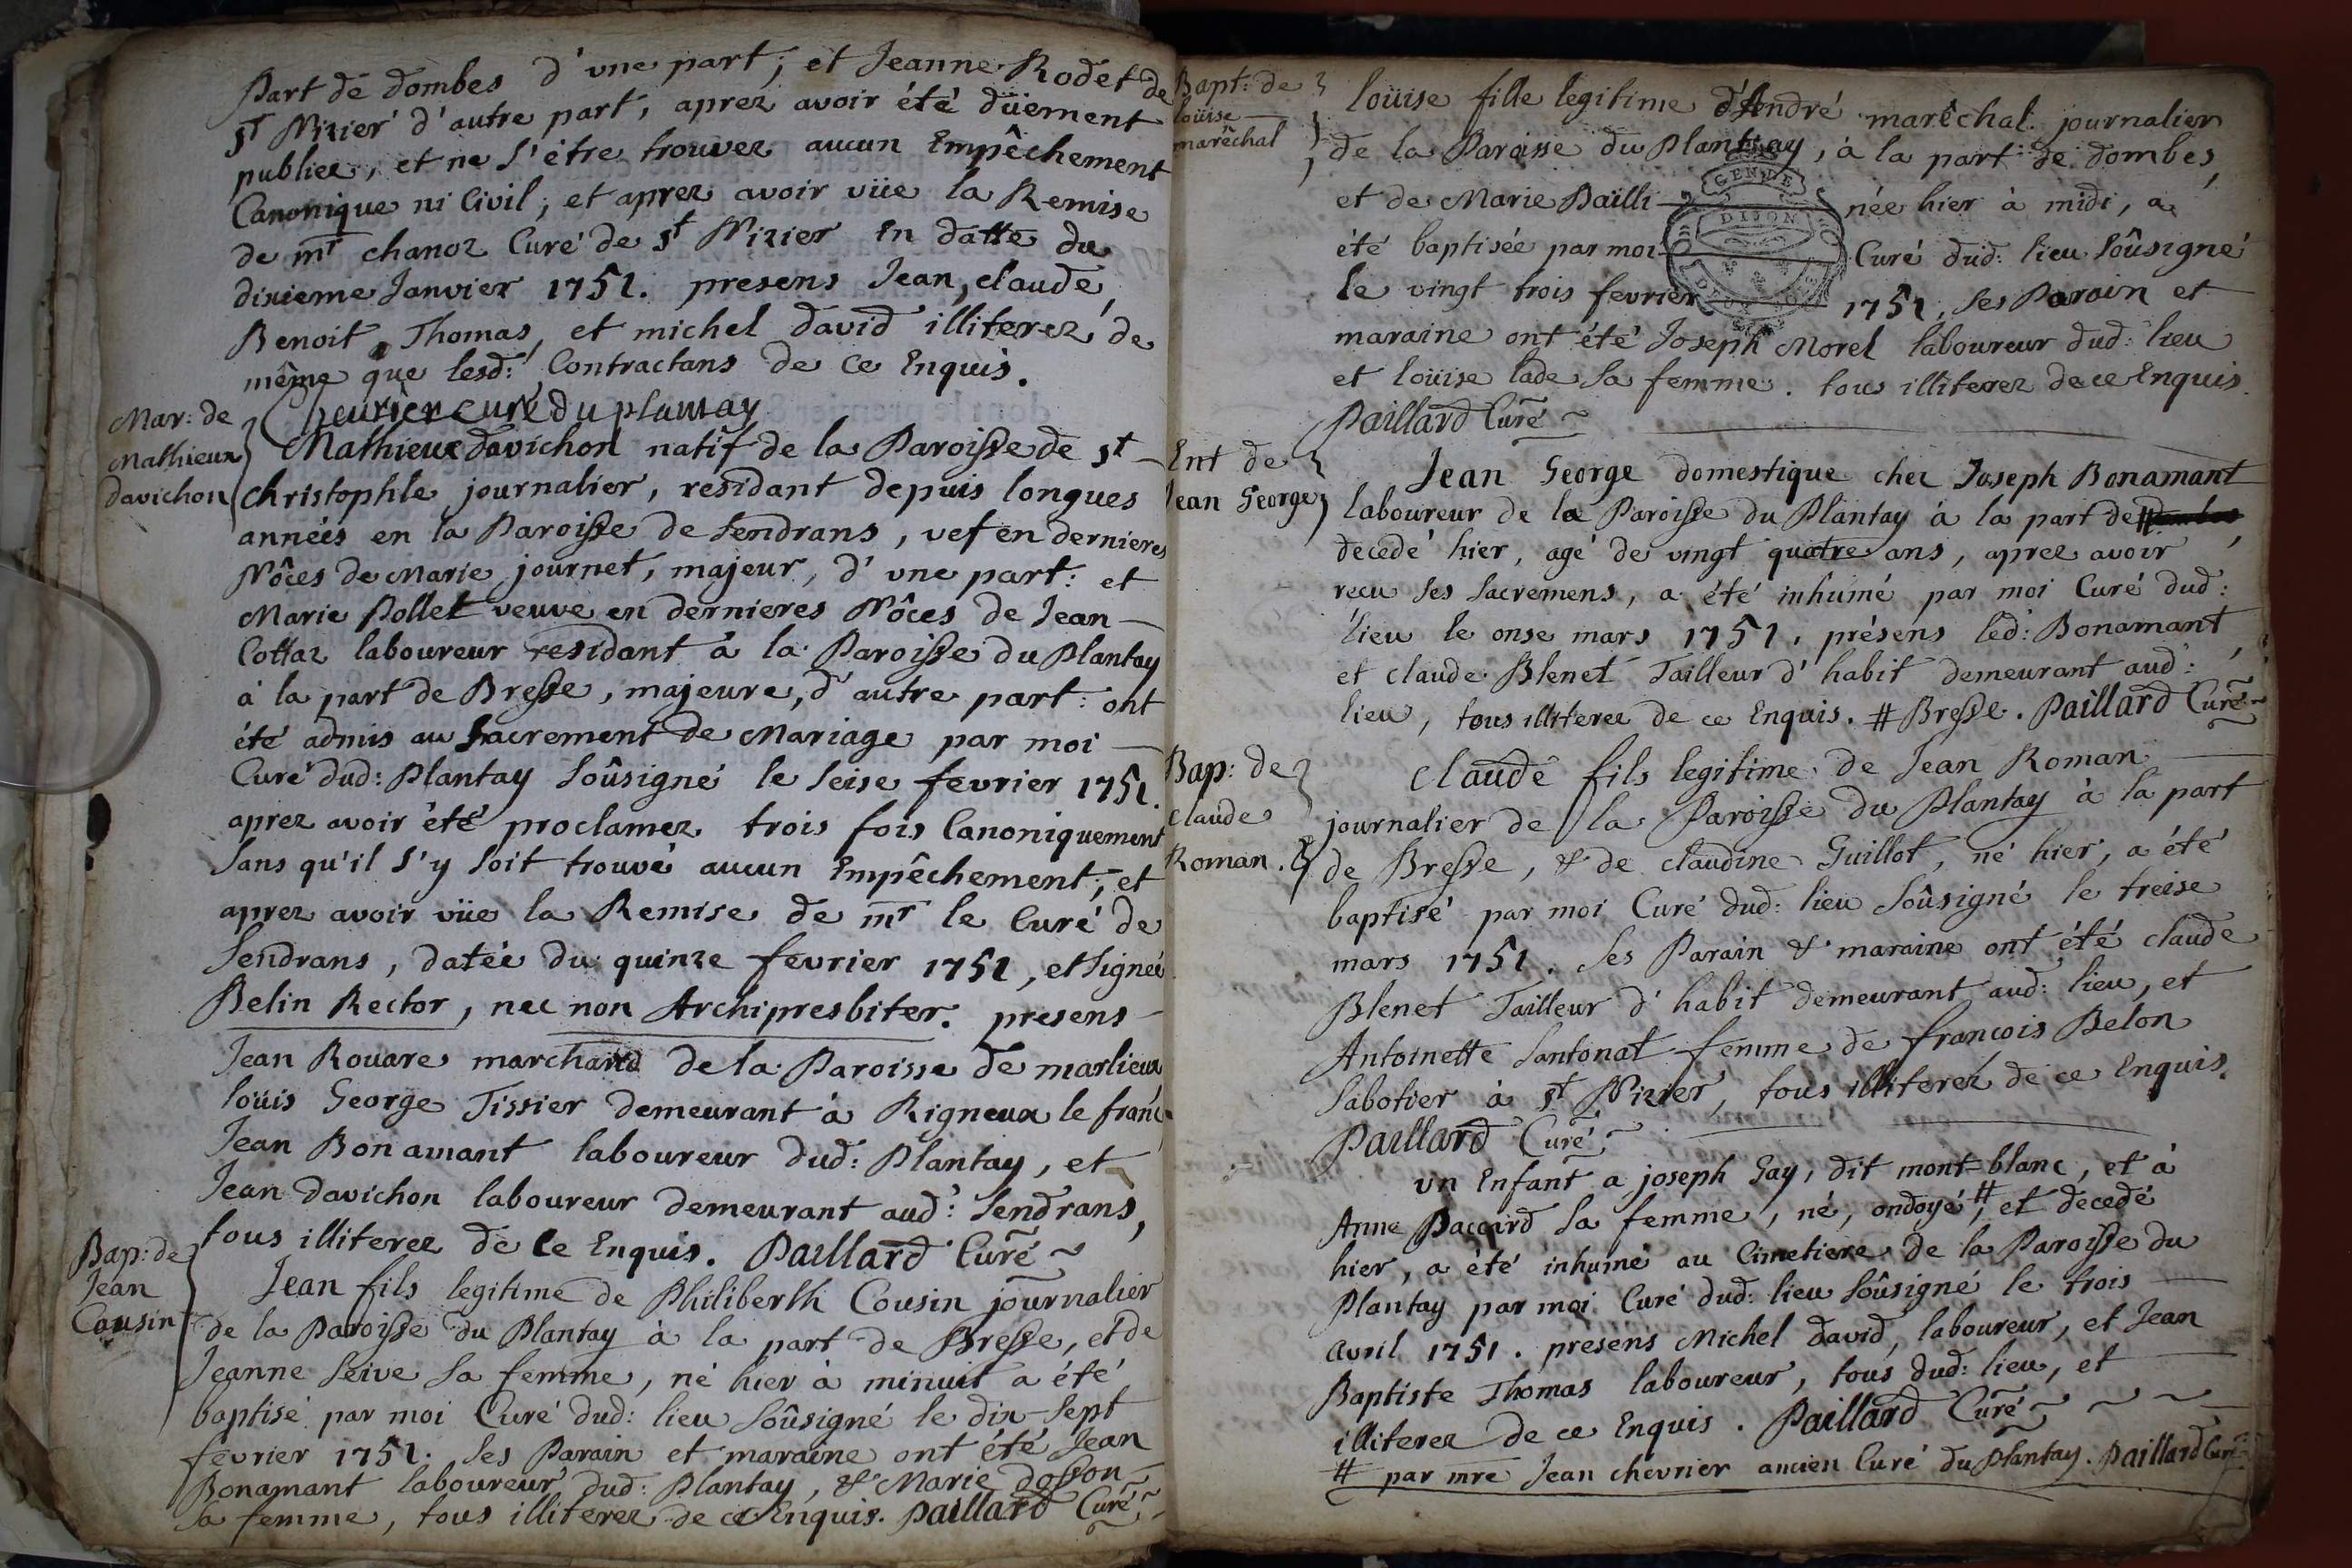 Part de dombes d'une part; et Jeanne Rodet de
st Nizier d'autre part, aprez avoir été düement
publiez, et ne s'être trouvez aucun Empêchement
Canonique ni Civil; et aprez avoir vüe la Remise
de mr chanoz Curé de st Nizier En datte du
dixieme Janvier 1751. presens Jean, claude,
Benoit, Thomas, et michel david illiterez, de
même que lesd: Contractans de ce Enquis.
Chevrier curé du plantay
Mar: de
Mathieux
davichon
Mathieux davichon natif de la Paroisse de st
christophle journalier, residant depuis longues
années en la Paroisse de Sendrans, vef en dernieres
Nôces de Marie journet, majeur, d'une part: et
Marie Pollet veuve en dernieres Nôces de Jean
Cottaz laboureur residant à la Paroisse du Plantay
à la part de Bresse, majeure, d'autre part: ont
été admis au Sacrement de Mariage par moi
Curé dud: Plantay soûsigné le seise fevrier 1751.
aprez avoir été proclamez trois fois Canoniquement
sans qu'il s'y soit trouvé aucun Empêchement; et
aprez avoir vüe la Remise de mr le Curé de
Sendrans, datée du quinze fevrier 1751, et signée
Belin Rector, nec non Archipresbiter. presens
Jean Rouare marchand de la Paroisse de marlieux
loüis George Tissier demeurant à Rigneux le franc
Jean Bonamant laboureur dud: Plantay, et
Jean davichon laboureur demeurant aud: Sendrans,
tous illiterez de ce Enquis. Paillard Curé
Bap: de
Jean
Cousin
Jean fils legitime de Philiberth Cousin journalier
de la Paroisse du Plantay à la part de Bresse, et de
Jeanne Seive sa femme, né hier à minuit a été
baptisé par moi Curé dud: lieu soûsigné le dix-sept
fevrier 1751. ses Parain et maraine ont été Jean
Bonamant laboureur dud: Plantay, & Marie dosson
sa femme, tous illiterez de ce Enquis. Paillard Curé
Bapt: de
loüise
marêchal
loüise fille legitime d'André marêchal journalier
de la Paroisse du Plantay, à la part de dombes,
et de Marie Pailli née hier à midi, a
été baptisée par moi Curé dud: lieu soûsigné
le vingt trois fevrier 1751. ses Parain et
maraine ont été Joseph Morel laboureur dud: lieu
et loüise lade sa femme. tous illiterez de ce Enquis.
Paillard Curé
GENDE
DIJON
Ent de
Jean George
Jean George domestique chez Joseph Bonamant
laboureur de la Paroisse du Plantay à la part de #
decedé hier, agé de vingt quatre ans, aprez avoir
reçu ses sacremens, a été inhumé par moi Curé dud:
lieu le onse mars 1751. présens led: Bonamant,
et claude Blenet Tailleur d'habit demeurant aud:
lieu, tous illiterez de ce Enquis. # Bresse. Paillard Curé
Bap: de
claude
Roman.
claude fils legitime de Jean Roman
journalier de la Paroisse du Plantay à la part
de Bresse, & de claudine Guillot, né hier, a été
baptisé par moi Curé dud: lieu soûsigné le treise
mars 1751. ses Parain & maraine ont été claude
Blenet Tailleur d'habit demeurant aud: lieu, et
Antoinette Santonat femme de francois Belon
Sabotier à st Nizier, tous illiterez de ce Enquis.
Paillard Curé
un Enfant a joseph Gay, dit mont=blanc, et à
Anne Paccard sa femme, né, ondoyé,# et decedé
hier, a été inhumé au Cimetiere de la Paroisse du
Plantay par moi Curé dud: lieu soûsigné le trois
avril 1751. presens Michel david, laboureur, et Jean
Baptiste Thomas laboureur, tous dud: lieu, et
illiterez de ce Enquis. Paillard Curé
# par mre Jean chevrier ancien Curé du Plantay. Paillard Curé